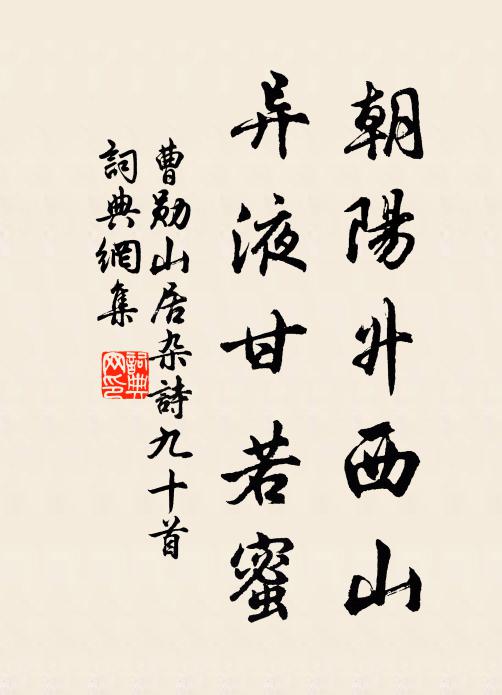 朝陽升西山
异液甘若蜜
曹勋山居杂詩九十首
詞典網集
詞典網印